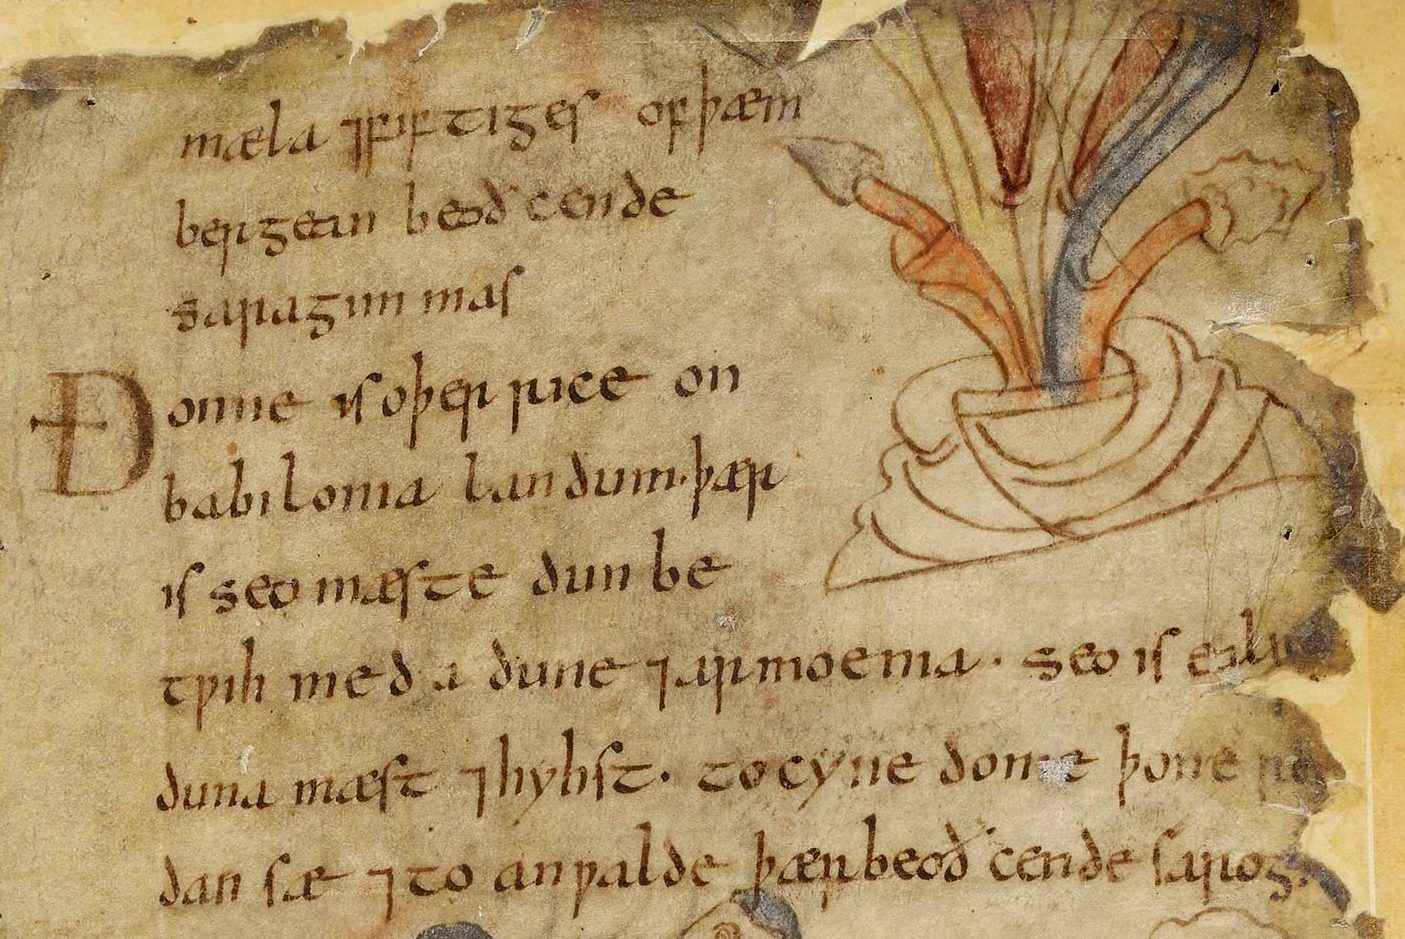 mæla ⁊fiftiges of þæm
bergean beoð cende
saragim mas
Ðonne is oþer rice on
babilonia landum· þær
is seo mæste dun be
tƿih meda dune ⁊armoenia· seo is
duna mæst ⁊hyhst· to cyne dome þone
dan sæ ⁊to anƿalde þær beoð cende